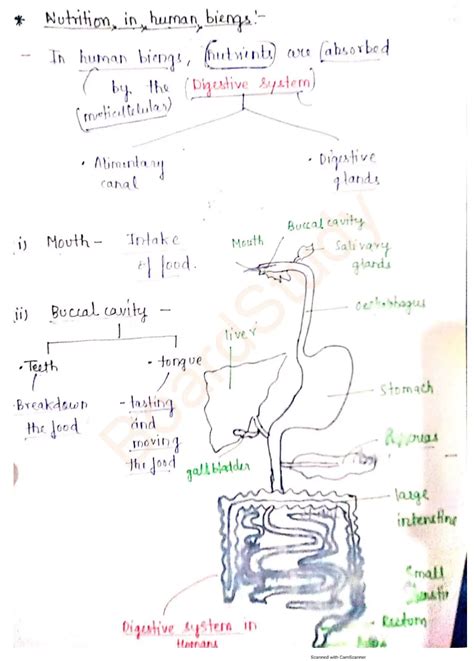 * Nutrition in human biengs :-
- In human biengs, nutrients are absorbed
by the Digestive system
(multicellular)
• Alimentary
canal
• Digestive
glands
i) Mouth - Intake
of food.
Mouth
Buccal cavity
Salivary
glands
ii) Buccal cavity -
• Teeth
Breakdown
the food
• tongue
- tasting
and
moving
the food
liver
Stomach
gallbladder
large
Small
Rectum
Digestive system in
Humans
BoardStudy
Scanned with CamScanner